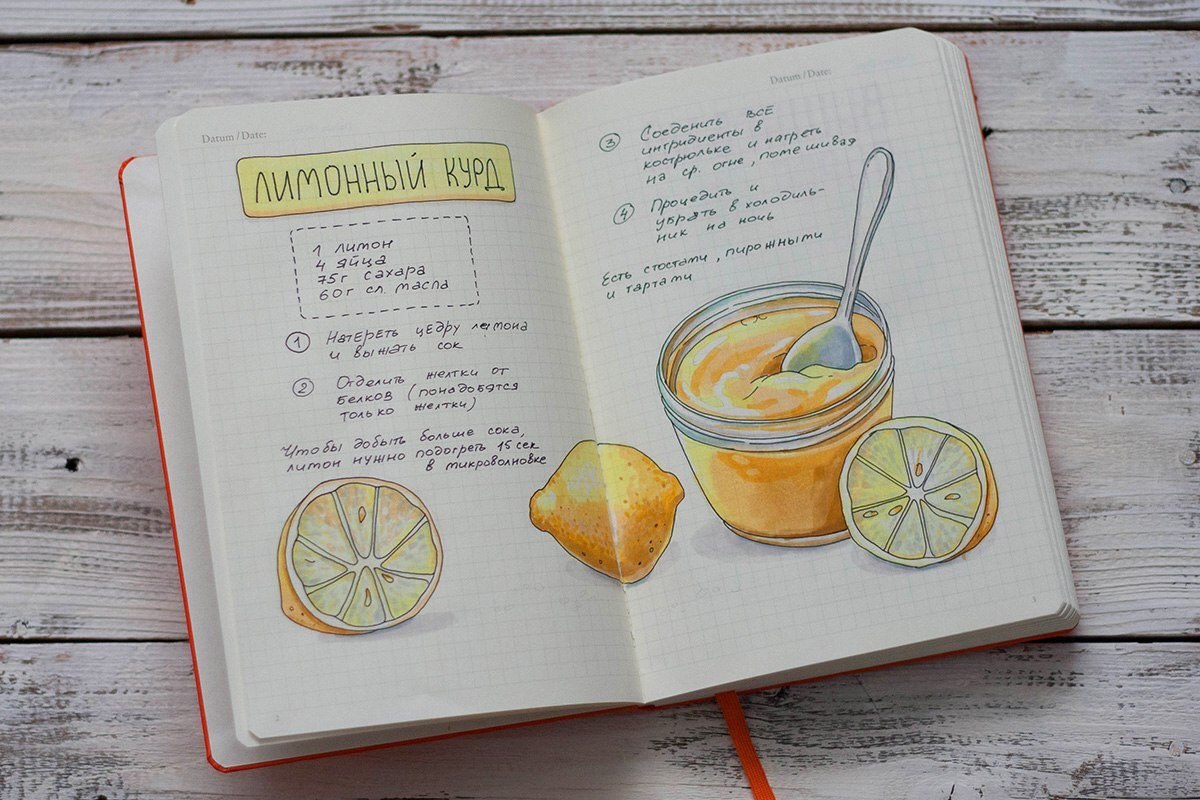 Datum / Date:
ЛИМОННЫЙ КУРД
1 лимон
4 яйца
75г сахара
60г сл. масла
1 Натереть цедру лемона
и выжать сок
2 Отделить желтки от
белков (понадобятся
только желтки)
Чтобы добыть больше сока,
лимон нужно подогреть 15 сек
в микроволновке
2
Datum / Date:
3 Соеденить все
интридиенты в
кострюльке и нагреть
на ср. огне, помешивая
4 Процедить и
убрать в холодиль-
ник на ночь
Есть стостами, пирожными
и тартами